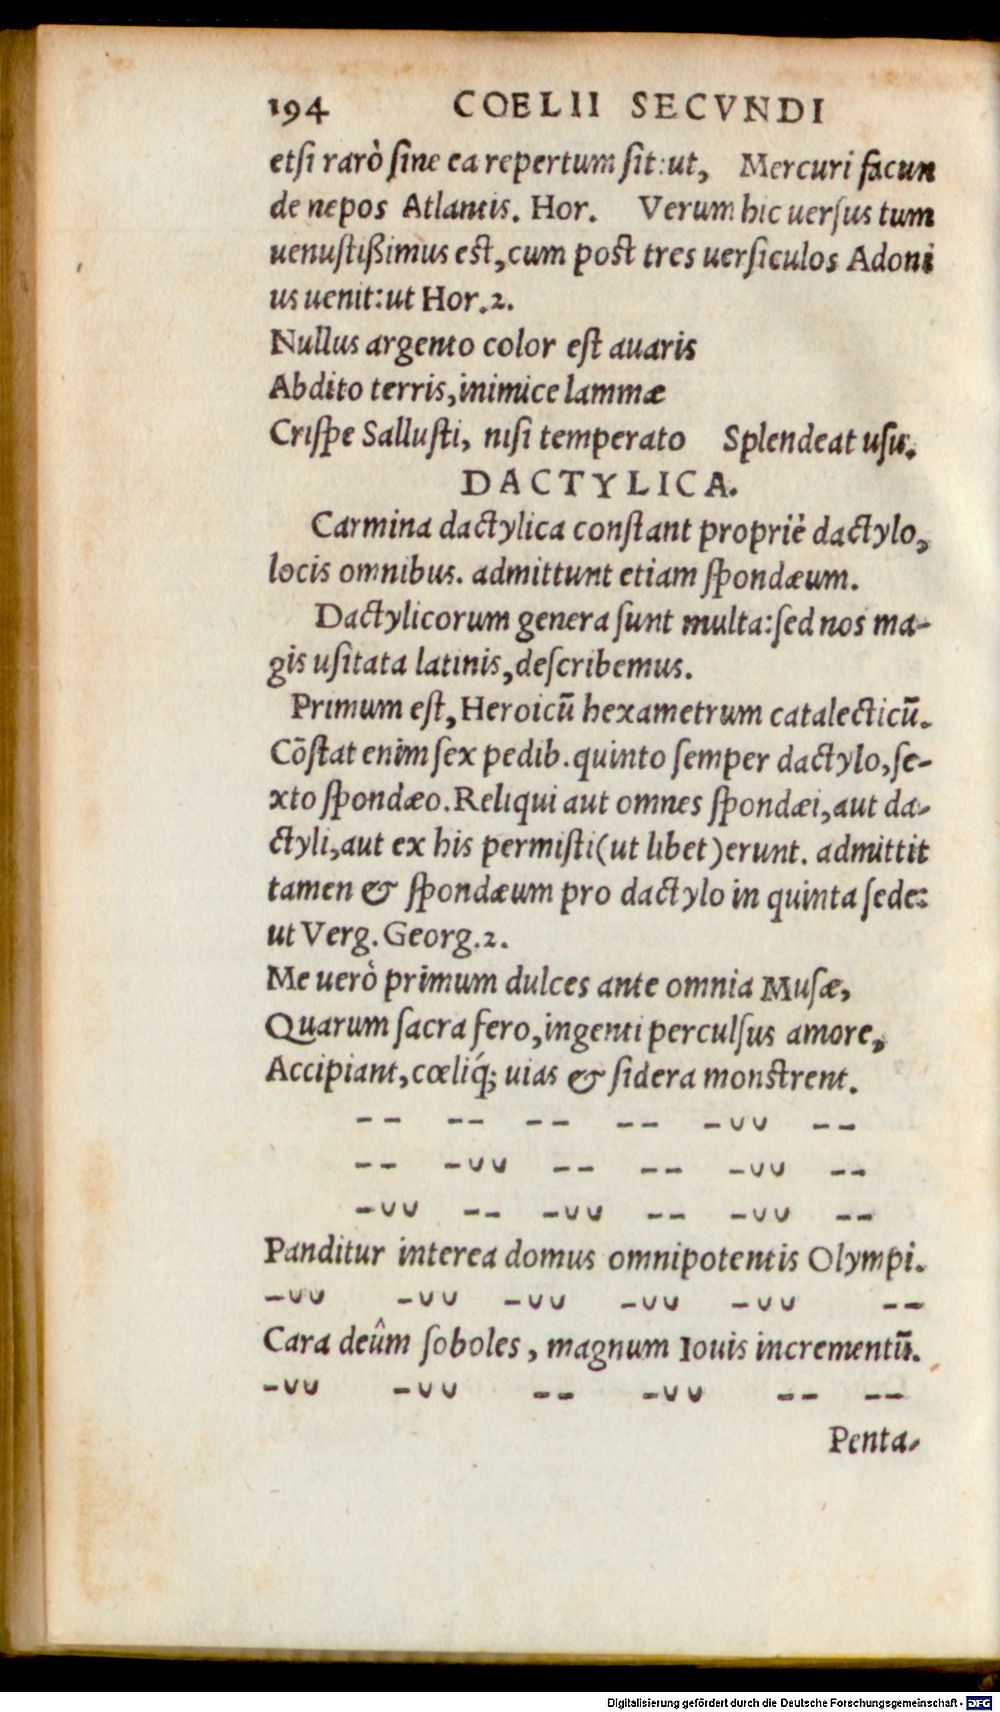 194 COELII SECVNDI
etſi rarò ſine ea repertum ſit:ut, Mercuri facun
de nepos Atlantis. Hor. Verum hic uerſus tum
uenuſtißimus eſt,cum poſt tres uerſiculos Adoni
us uenit:ut Hor.2.
Nullus argento color eſt auaris
Abdito terris,inimice lammæ
Criſpe Salluſti, niſi temperato Splendeat uſu.
DACTYLICA.
Carmina dactylica conſtant propriè dactylo,
locis omnibus. admittunt etiam ſpondæum.
Dactylicorum genera ſunt multa:ſed nos ma-
gis uſitata latinis,deſcribemus.
Primum eſt,Heroicū hexametrum catalecticū.
Cōſtat enim ſex pedib.quinto ſemper dactylo,ſe-
xto ſpondæo.Reliqui aut omnes ſpondæi,aut da-
ctyli,aut ex his permiſti(ut libet)erunt. admittit
tamen & ſpondæum pro dactylo in quinta ſede:
ut Verg. Georg.2.
Me uerò primum dulces ante omnia Muſæ,
Quarum ſacra fero,ingenti perculſus amore,
Accipiant,cœliq́; uias & ſidera monſtrent.
-- -- -- -- -∪∪ --
-- -∪∪ -- -- -∪∪ --
-∪∪ -- -∪∪ -- -∪∪ --
Panditur interea domus omnipotentis Olympi.
-∪∪ -∪∪ -∪∪ -∪∪ -∪∪ --
Cara deûm ſoboles, magnum Iouis incrementū.
-∪∪ -∪∪ -- -∪∪ -- --
Penta-
Digitalisierung gefördert durch die Deutsche Forschungsgemeinschaft - DFG